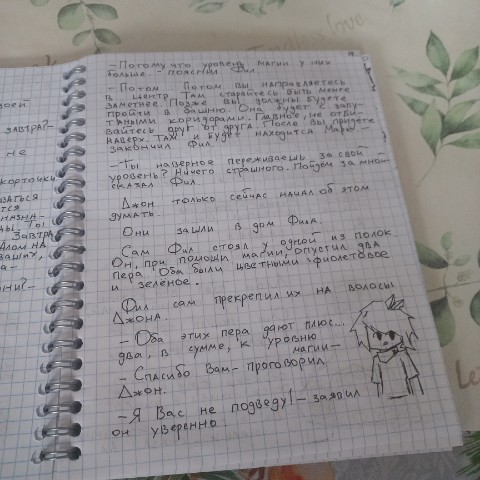 -Потому что уровень магии у них
больше.- пояснил Фил.
-Потом.. Потом вы направляетесь
в центр. Там старайтесь быть менее
заметнее. Позже вы должны будете
пройти в башню. Она будет с запу-
танными коридорами. Главное, не отби-
вайтесь друг от друга. После вы придете
наверх. Там и будет находится
закончил Фил.
-Ты наверное переживаешь за свой
уровень? Ничего страшного. Пойдём за мной-
сказал Фил.
Джон только сейчас начал об этом
думать.
Они зашли в дом Фила.
Сам Фил стоял у одной из полок.
Он, при помощи магии, опустил два
пера. Оба были цветными-фиолетовое
и зелёное.
Фил сам прекрепил их на волосы
Джона.
-Оба этих пера дают плюс...
два, в сумме, к уровню
магии-
-Спасибо Вам-проговорил
Джон.
-Я Вас не подведу!-заявил
он уверенно.
завтра?-
не
карточки
Завтра